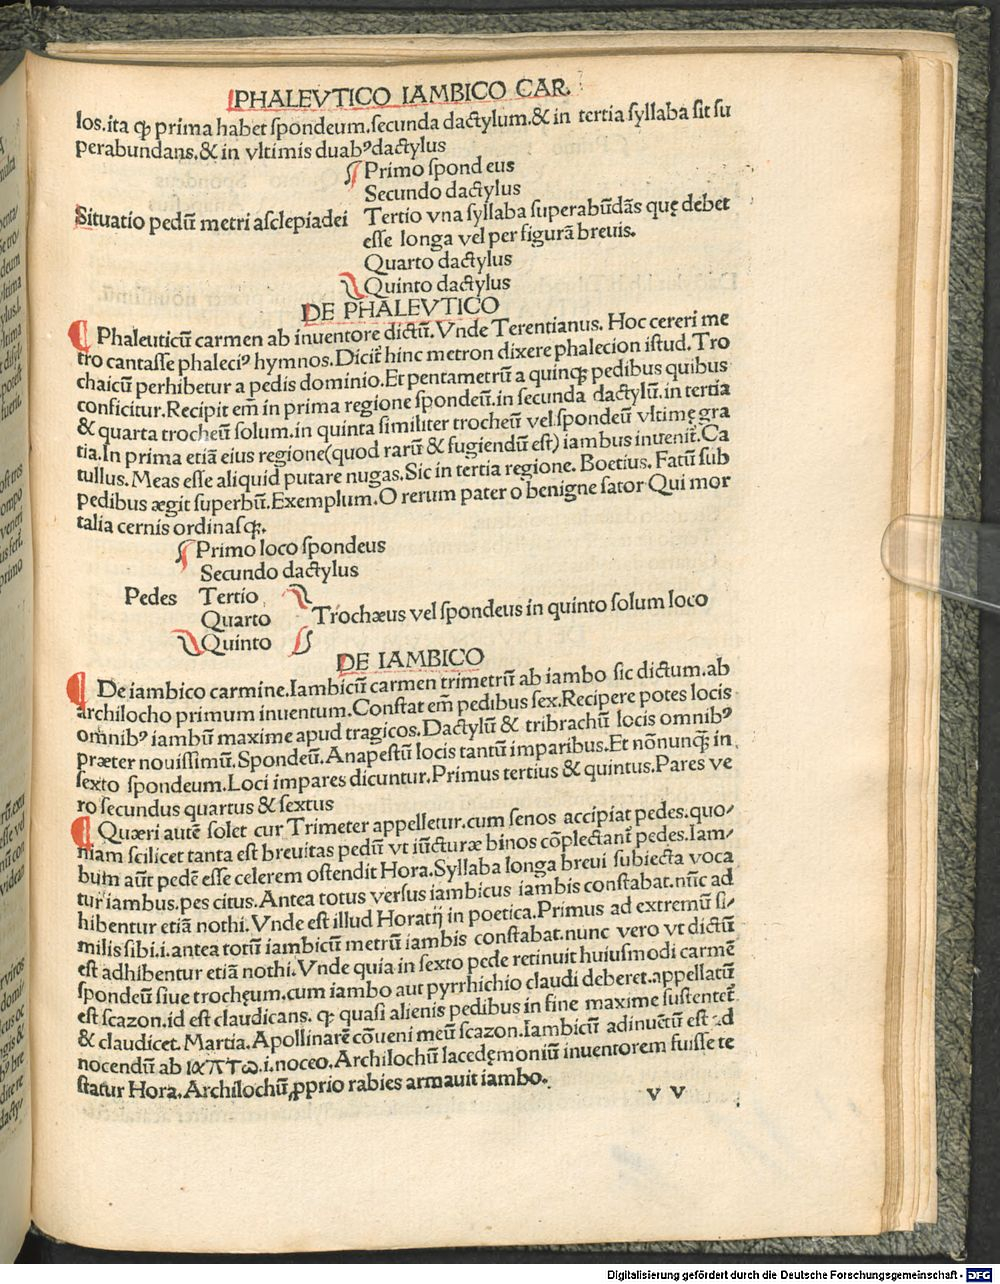 PHALEVTICO IAMBICO CAR.
los.ita qꝫ prima habet spondeum.secunda dactylum.& in tertia syllaba sit su
perabundans.& in vltimis duabꝰ dactylus
Primo spondeus
Secundo dactylus
Situatio pedū metri asclepiadei
Tertio vna syllaba superabūdās quę debet
esse longa vel per figurā brevis.
Quarto dactylus
Quinto dactylus
DE PHALEVTICO
Phaleuticū carmen ab inuentore dictū.Vnde Terentianus. Hoc cereri me
tro cantasse phaleciꝰ hymnos.Dicit̄ hinc metron dixere phalecion istud.Tro
chaicū perhibetur a pedis dominio.Et pentametrū a quinqꝫ pedibus quibus
conficitur.Recipit em̄ in prima regione spondeū.in secunda dactylū.in tertia
& quarta trocheū solum.in quinta similiter trocheū vel spondeū vltimę gra
tia.In prima etiā eius regione(quod rarū & fugiendū est) iambus inuenit̄.Ca
tullus. Meas esse aliquid putare nugas.Sic in tertia regione. Boetius. Fatū sub
pedibus ægit superbū.Exemplum.O rerum pater o benigne sator Qui mor
talia cernis ordinasqꝫ.
Primo loco spondeus
Secundo dactylus
Pedes Tertio
Quarto
Trochæus vel spondeus in quinto solum loco
Quinto
DE IAMBICO
De iambico carmine.Iambicū carmen trimetrū ab iambo sic dictum.ab
archilocho primum inuentum.Constat em̄ pedibus sex.Recipere potes locis
omnibꝰ iambū maxime apud tragicos.Dactylū & tribrachū locis omnibꝰ
præter nouissimū.Spondeū.Anapestū locis tantū imparibus.Et nōnunqꝫ in
sexto spondeum.Loci impares dicuntur.Primus tertius & quintus.Pares ve
ro secundus quartus & sextus
Quæri autē solet cur Trimeter appelletur.cum senos accipiat pedes.quo/
niam scilicet tanta est breuitas pedū vt iūcturæ binos cōplectant̄ pedes.Iam/
bum aūt pedē esse celerem ostendit Hora.Syllaba longa breui subiecta voca
tur iambus.pes citus.Antea totus versus iambicus iambis constabat.nūc ad
hibentur etiā nothi.Vnde est illud Horatij in poetica.Primus ad extremū si/
milis sibi.i.antea totū iambicū metrū iambis constabat.nunc vero vt dictū
est adhibentur etiā nothi.Vnde quia in sexto pede retinuit huiusmodi carmē
spondeū siue trochęum.cum iambo aut pyrrhichio claudi deberet.appellatū
est scazon.id est claudicans. qꝫ quasi alienis pedibus in fine maxime sustentet̄
& claudicet. Martia. Apollinarē cōueni meū scazon.Iambicū adinuētū est ad
nocendū ab ιαπτω.i.noceo.Archilochū lacedęmoniū inuentorem fuisse te
statur Hora.Archilochū ꝓprio rabies armauit iambo.
v v
Digitalisierung gefördert durch die Deutsche Forschungsgemeinschaft - DFG